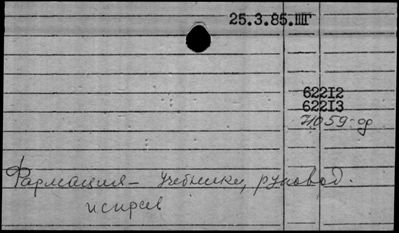 25.3.85.ШГ
62212
62213
71059-од
Фармация — учебники, руковод.
и справ